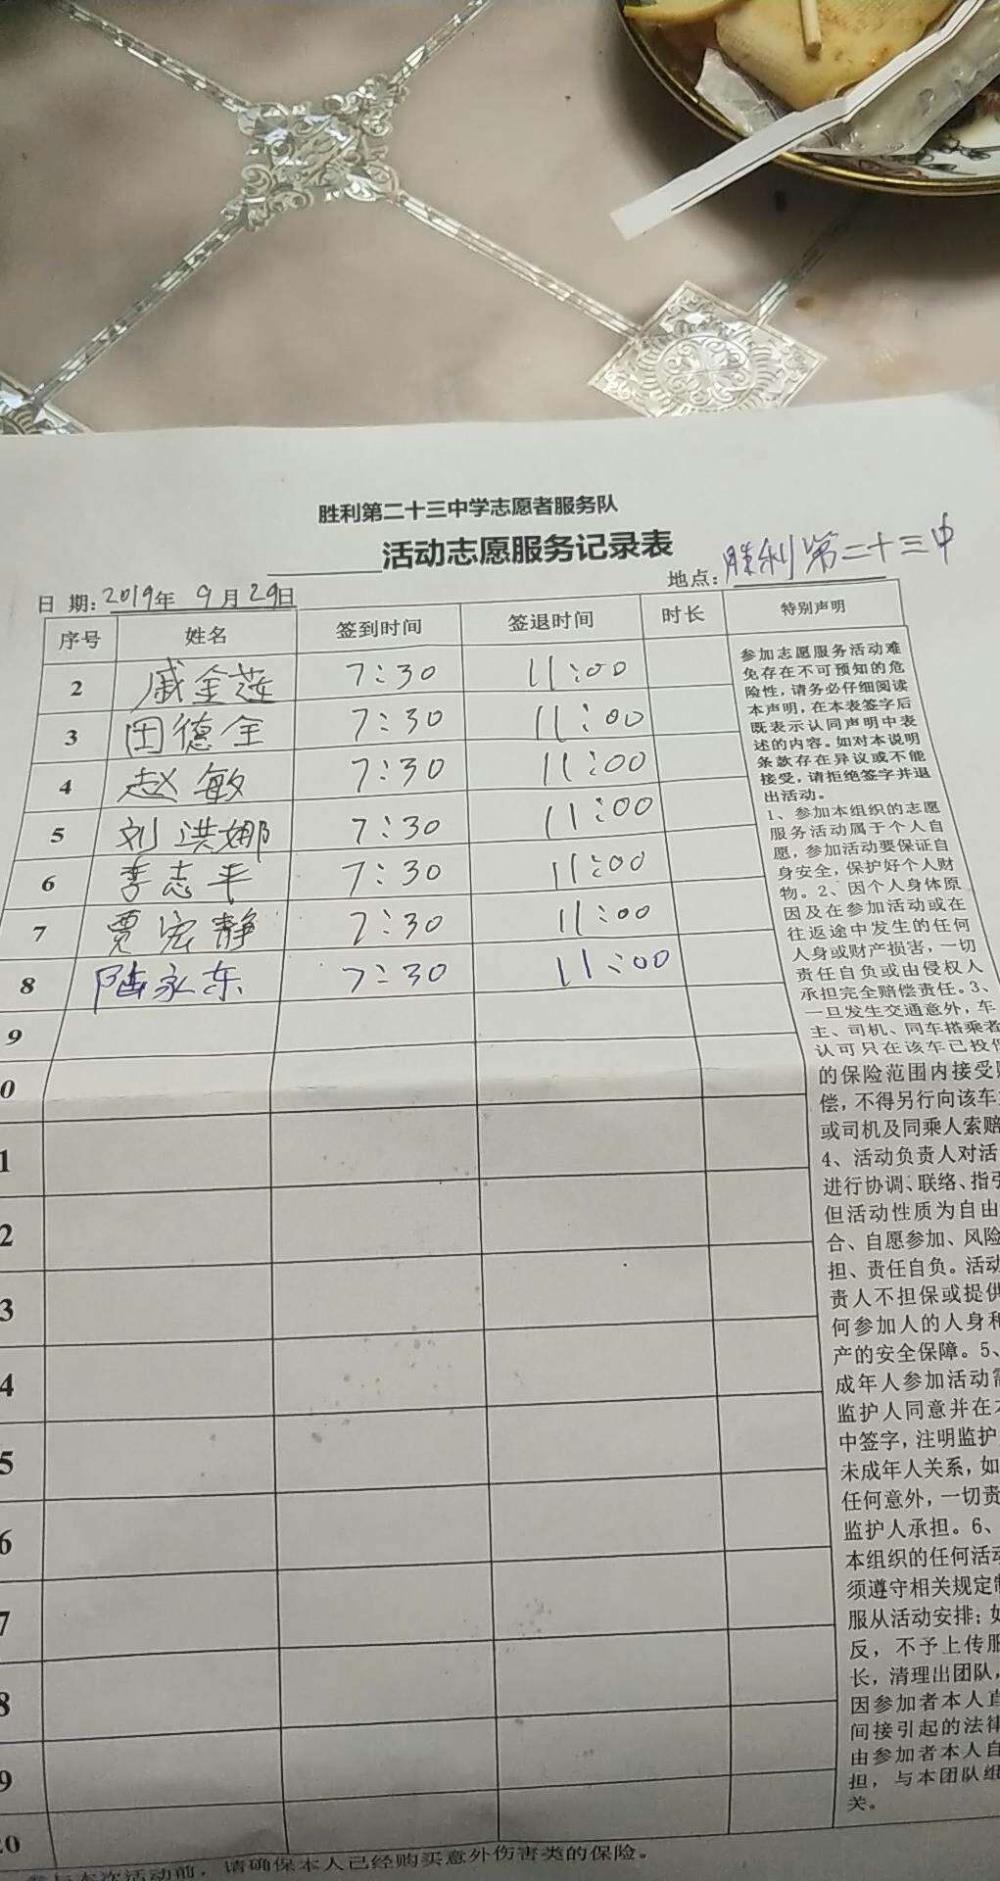 胜利第二十三中学志愿者服务队
活动志愿服务记录表
日 期: 2019年 9月29日 地点: 胜利第二十三中
序号 姓名 签到时间 签退时间 时长 特别声明
2 戚金莲 7:30 11:00
3 田德全 7:30 11:00
4 赵敏 7:30 11:00
5 刘洪娜 7:30 11:00
6 李志平 7:30 11:00
7 贾宏静 7:30 11:00
8 陆永东 7:30 11:00
9
0
1
2
3
4
5
6
7
8
9
0
参加志愿服务活动难
免存在不可预知的危
险性,请务必仔细阅读
本声明,在本表签字后
既表示认同声明中表
述的内容。如对本说明
条款存在异议或不能
接受,请拒绝签字并退
出活动。
1、参加本组织的志愿
服务活动属于个人自
愿,参加活动要保证自
身安全,保护好个人财
物。2、因个人身体原
因及在参加活动或在
往返途中发生的任何
人身或财产损害,一切
责任自负或由侵权人
承担完全赔偿责任。3、
一旦发生交通意外,车
主、司机、同车搭乘者
认可只在该车已投保
的保险范围内接受赔
偿,不得另行向该车
或司机及同乘人索赔
4、活动负责人对活
进行协调、联络、指引
但活动性质为自由
合、自愿参加、风险
担、责任自负。活动
责人不担保或提供
何参加人的人身和
产的安全保障。5、
成年人参加活动需
监护人同意并在本
中签字,注明监护
未成年人关系,如
任何意外,一切责
监护人承担。6、
本组织的任何活动
须遵守相关规定制
服从活动安排;如
反,不予上传服
长,清理出团队,
因参加者本人直
间接引起的法律
由参加者本人自
担,与本团队组
关。
本次活动前,请确保本人已经购买意外伤害类的保险。